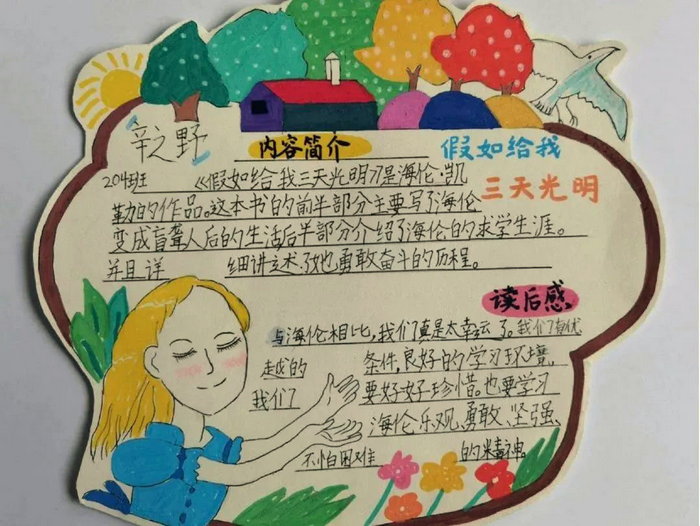 辛之野
内容简介
假如给我
三天光明
204班 《假如给我三天光明》是海伦·凯
勒的作品。这本书的前半部分主要写了海伦
变成盲聋人后的生活后半部分介绍了海伦的求学生涯。
并且详 细讲述了她勇敢奋斗的历程。
读后感
与海伦相比,我们真是太幸运了。我们有优
越的 条件,良好的学习环境,
我们 要好好珍惜。也要学习
海伦乐观、勇敢、坚强、
不怕困难 的精神。